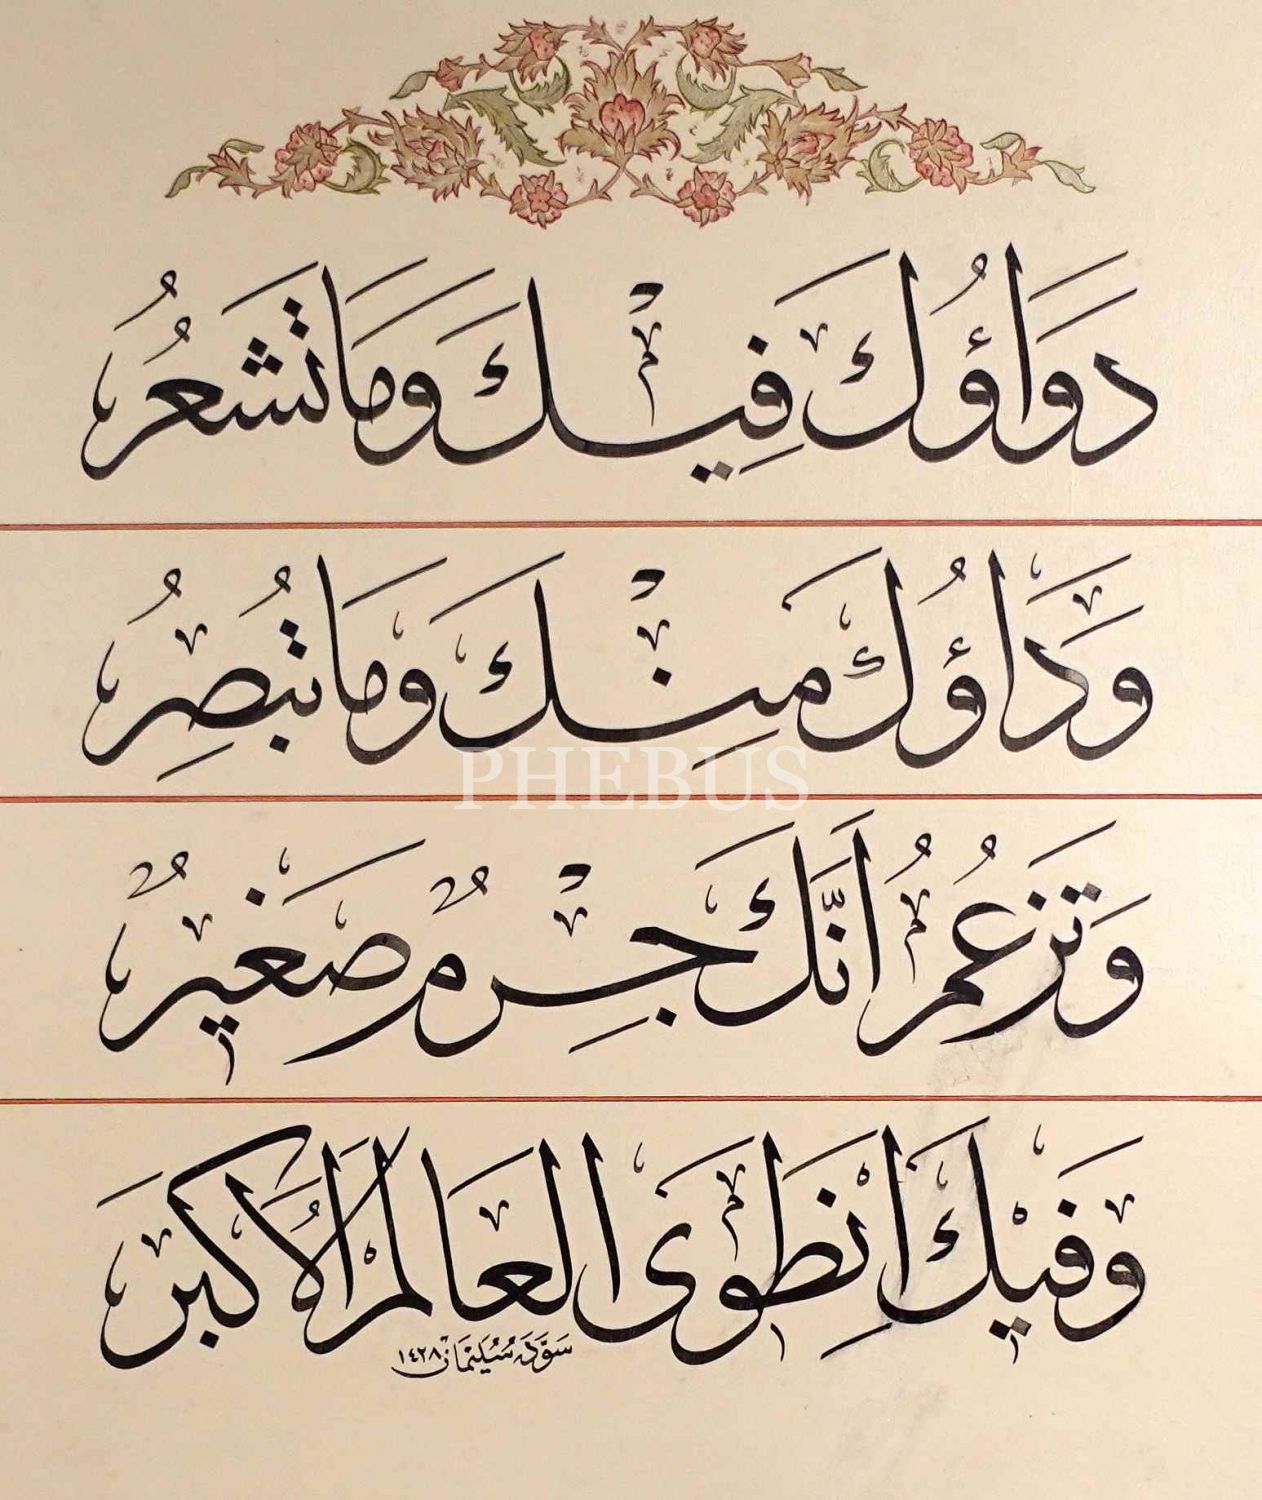 دَوَاؤُكَ فِيْكَ وَمَا تَشعُرُ
وَدَاؤُكَ مِنْكَ وَمَا تُبصِرُ
PHEBUS
وَتَزعُمُ أَنَّكَ جِرْمٌ صَغيرٌ
وَفيكَ انْطَوَى العَالَمُ الأَكبَرُ
سَوَّدَهُ سُلَيْمَانْ ١٤٢٨